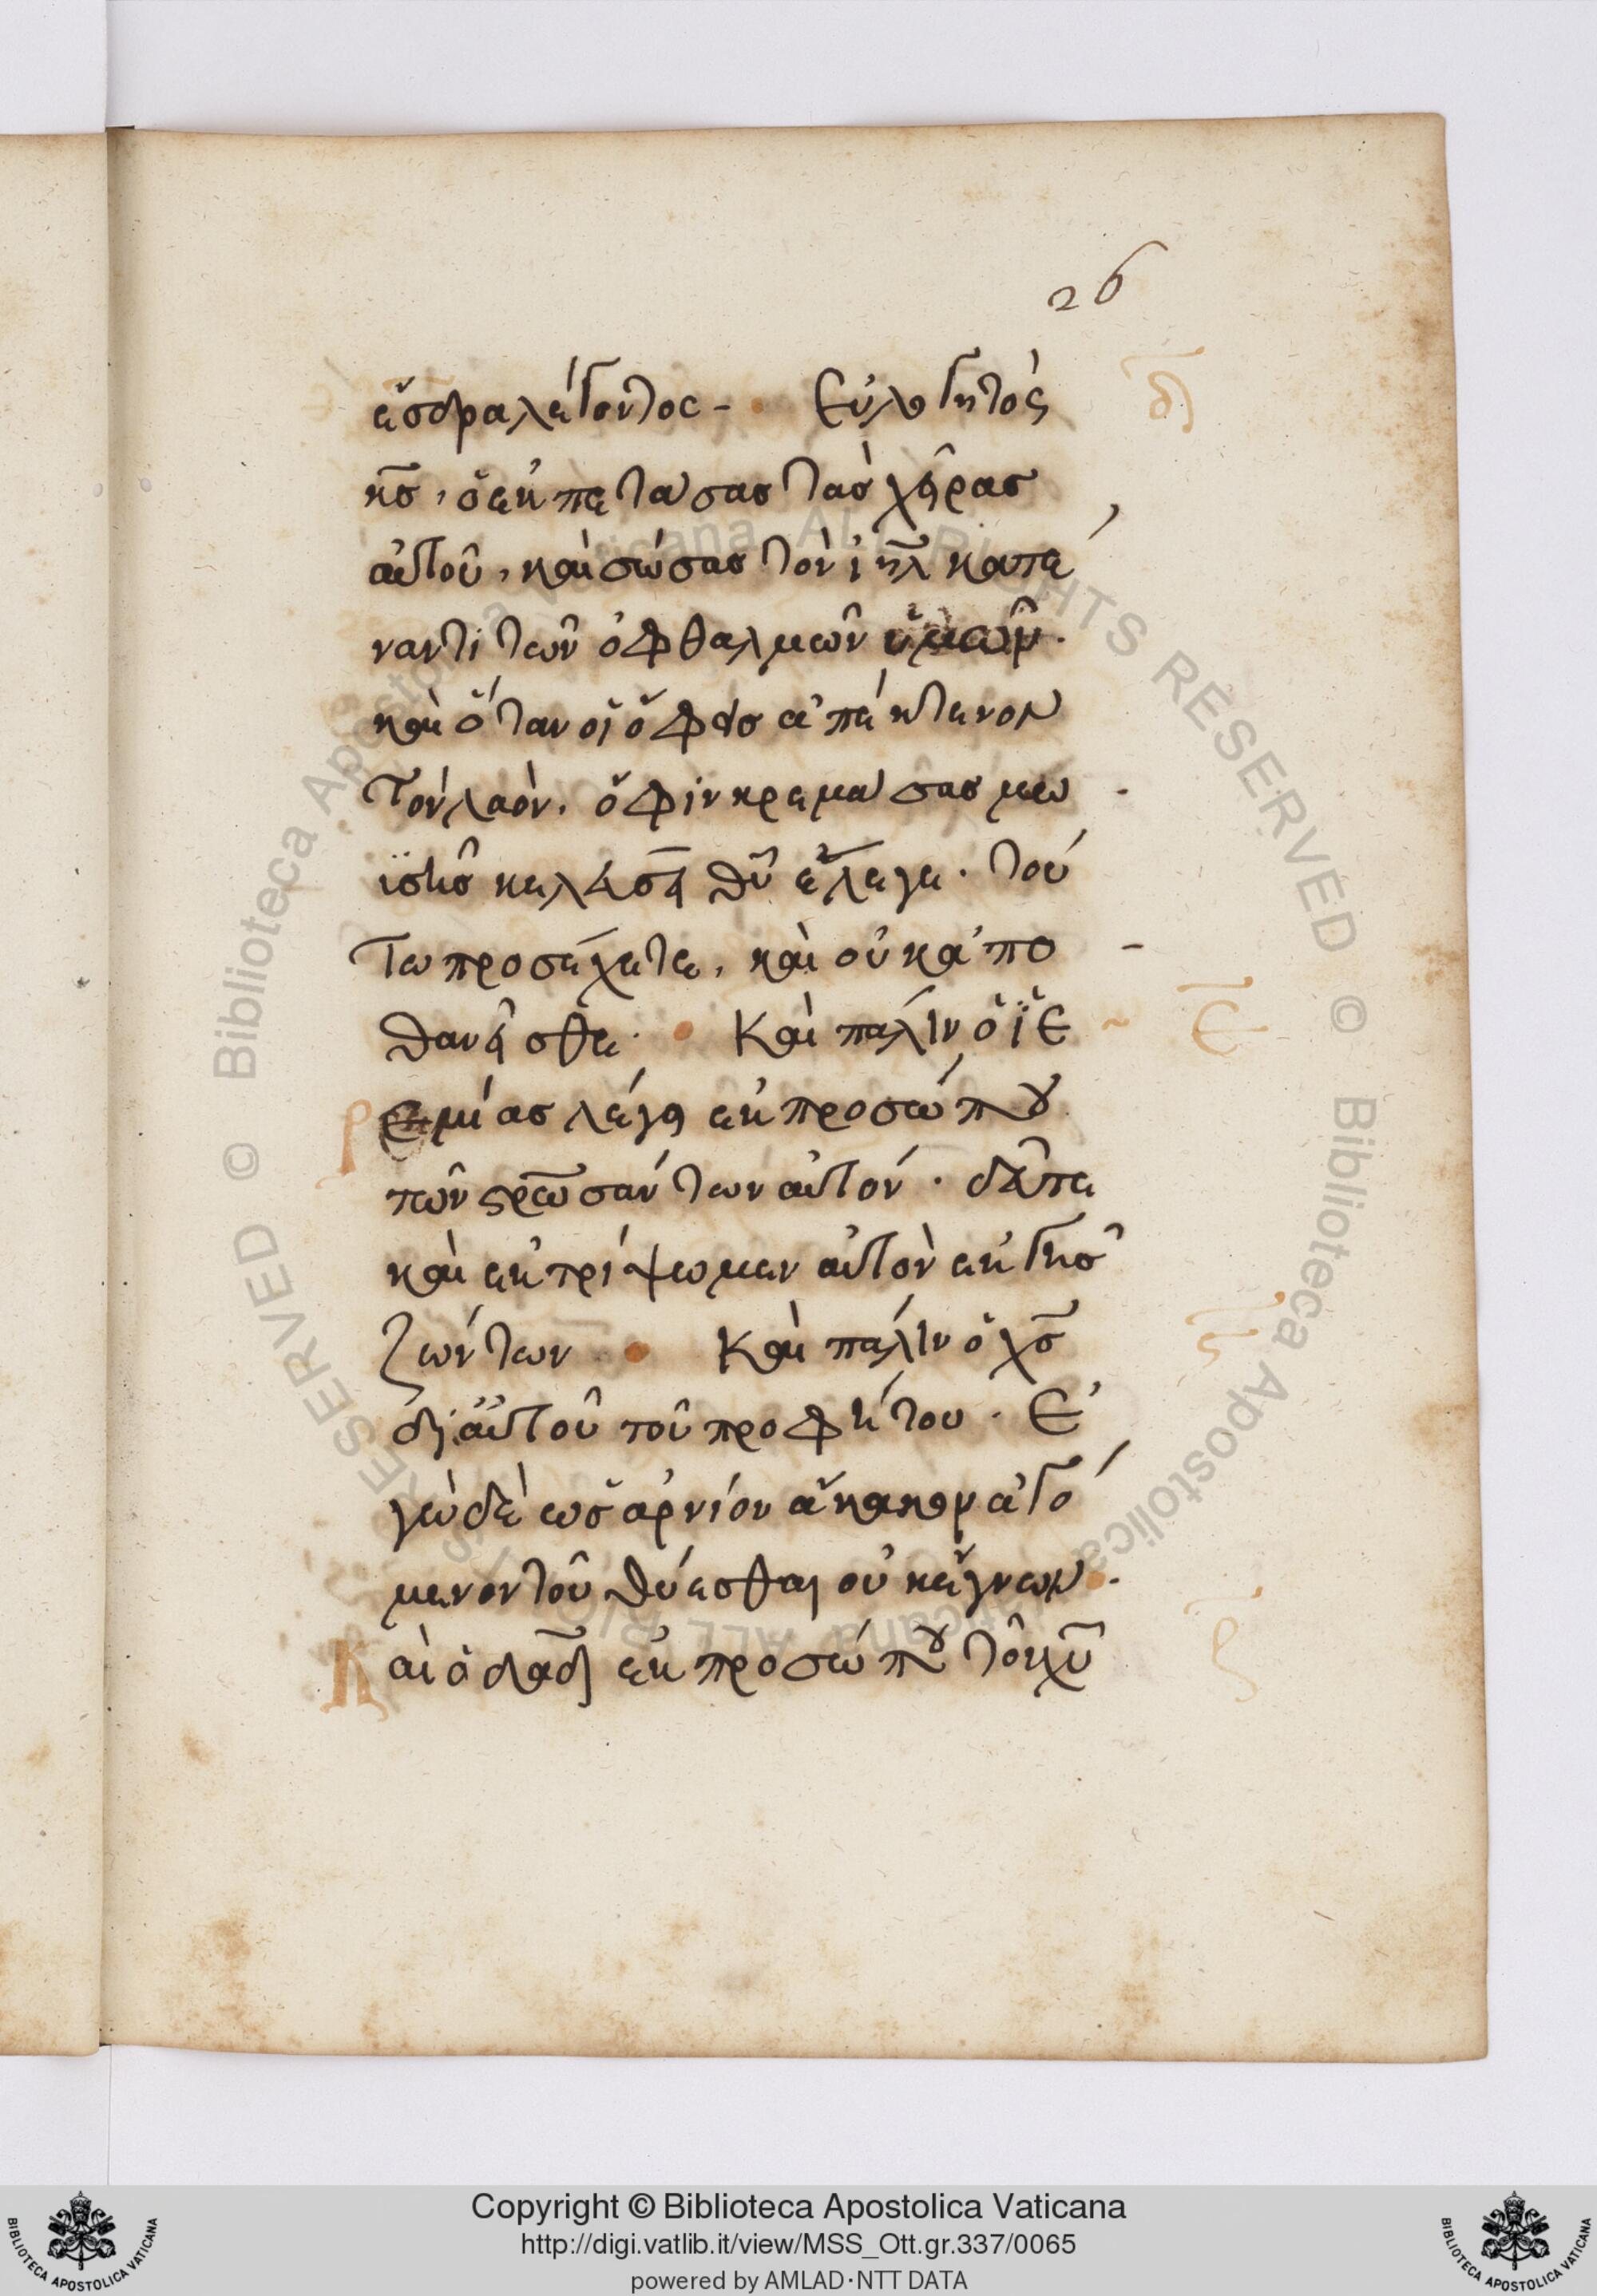 26
ἔσδρα λέγοντος - Εὐλογητὸς
κ̅ς̅, ὁ ἐκπετάσας τὰς χεῖρας
αὐτοῦ, καὶ σώσας τὸν ι̅η̅λ̅ κατέ
ναντι τῶν ὀφθαλμῶν ὑμῶν.
καὶ ὅταν οἱ ὄφεις ἀπέκτενον
τὸν λαόν. ὄφιν κρεμάσας μω
ϊσῆς κελεύσει θ̅υ̅ ἔλεγε. τού
τω προσέχετε, καὶ οὐκ ἀπο
θανεῖσθε. Καὶ πάλιν ὁ ϊε
δ̅
ε̅
ρεμίας λέγει ἐκ προσώπου
τῶν σ̅ρ̅ω̅σάντων αὐτόν. δεῦτε
καὶ ἐκτρίψωμεν αὐτὸν ἐκ γῆς
ζώντων Καὶ πάλιν ὁ χ̅ς̅
ϛ̅
δι' αὐτοῦ τοῦ προφήτου. Ἐ
γὼ δὲ ὡς ἀρνίον ἄκακον ἀγό
μενον τοῦ θύεσθαι οὐκ ἔγνων.
Καὶ ὁ δ̅α̅δ̅ ἐκ προσώπου τοῦ χ̅υ̅
ζ̅
Copyright © Biblioteca Apostolica Vaticana
http://digi.vatlib.it/view/MSS_Ott.gr.337/0065
powered by AMLAD·NTT DATA
BIBLIOTECA APOSTOLICA VATICANA
BIBLIOTECA APOSTOLICA VATICANA
© Biblioteca Apostolica Vaticana ALL RIGHTS RESERVED © Biblioteca Apostolica Vaticana ALL RIGHTS RESERVED